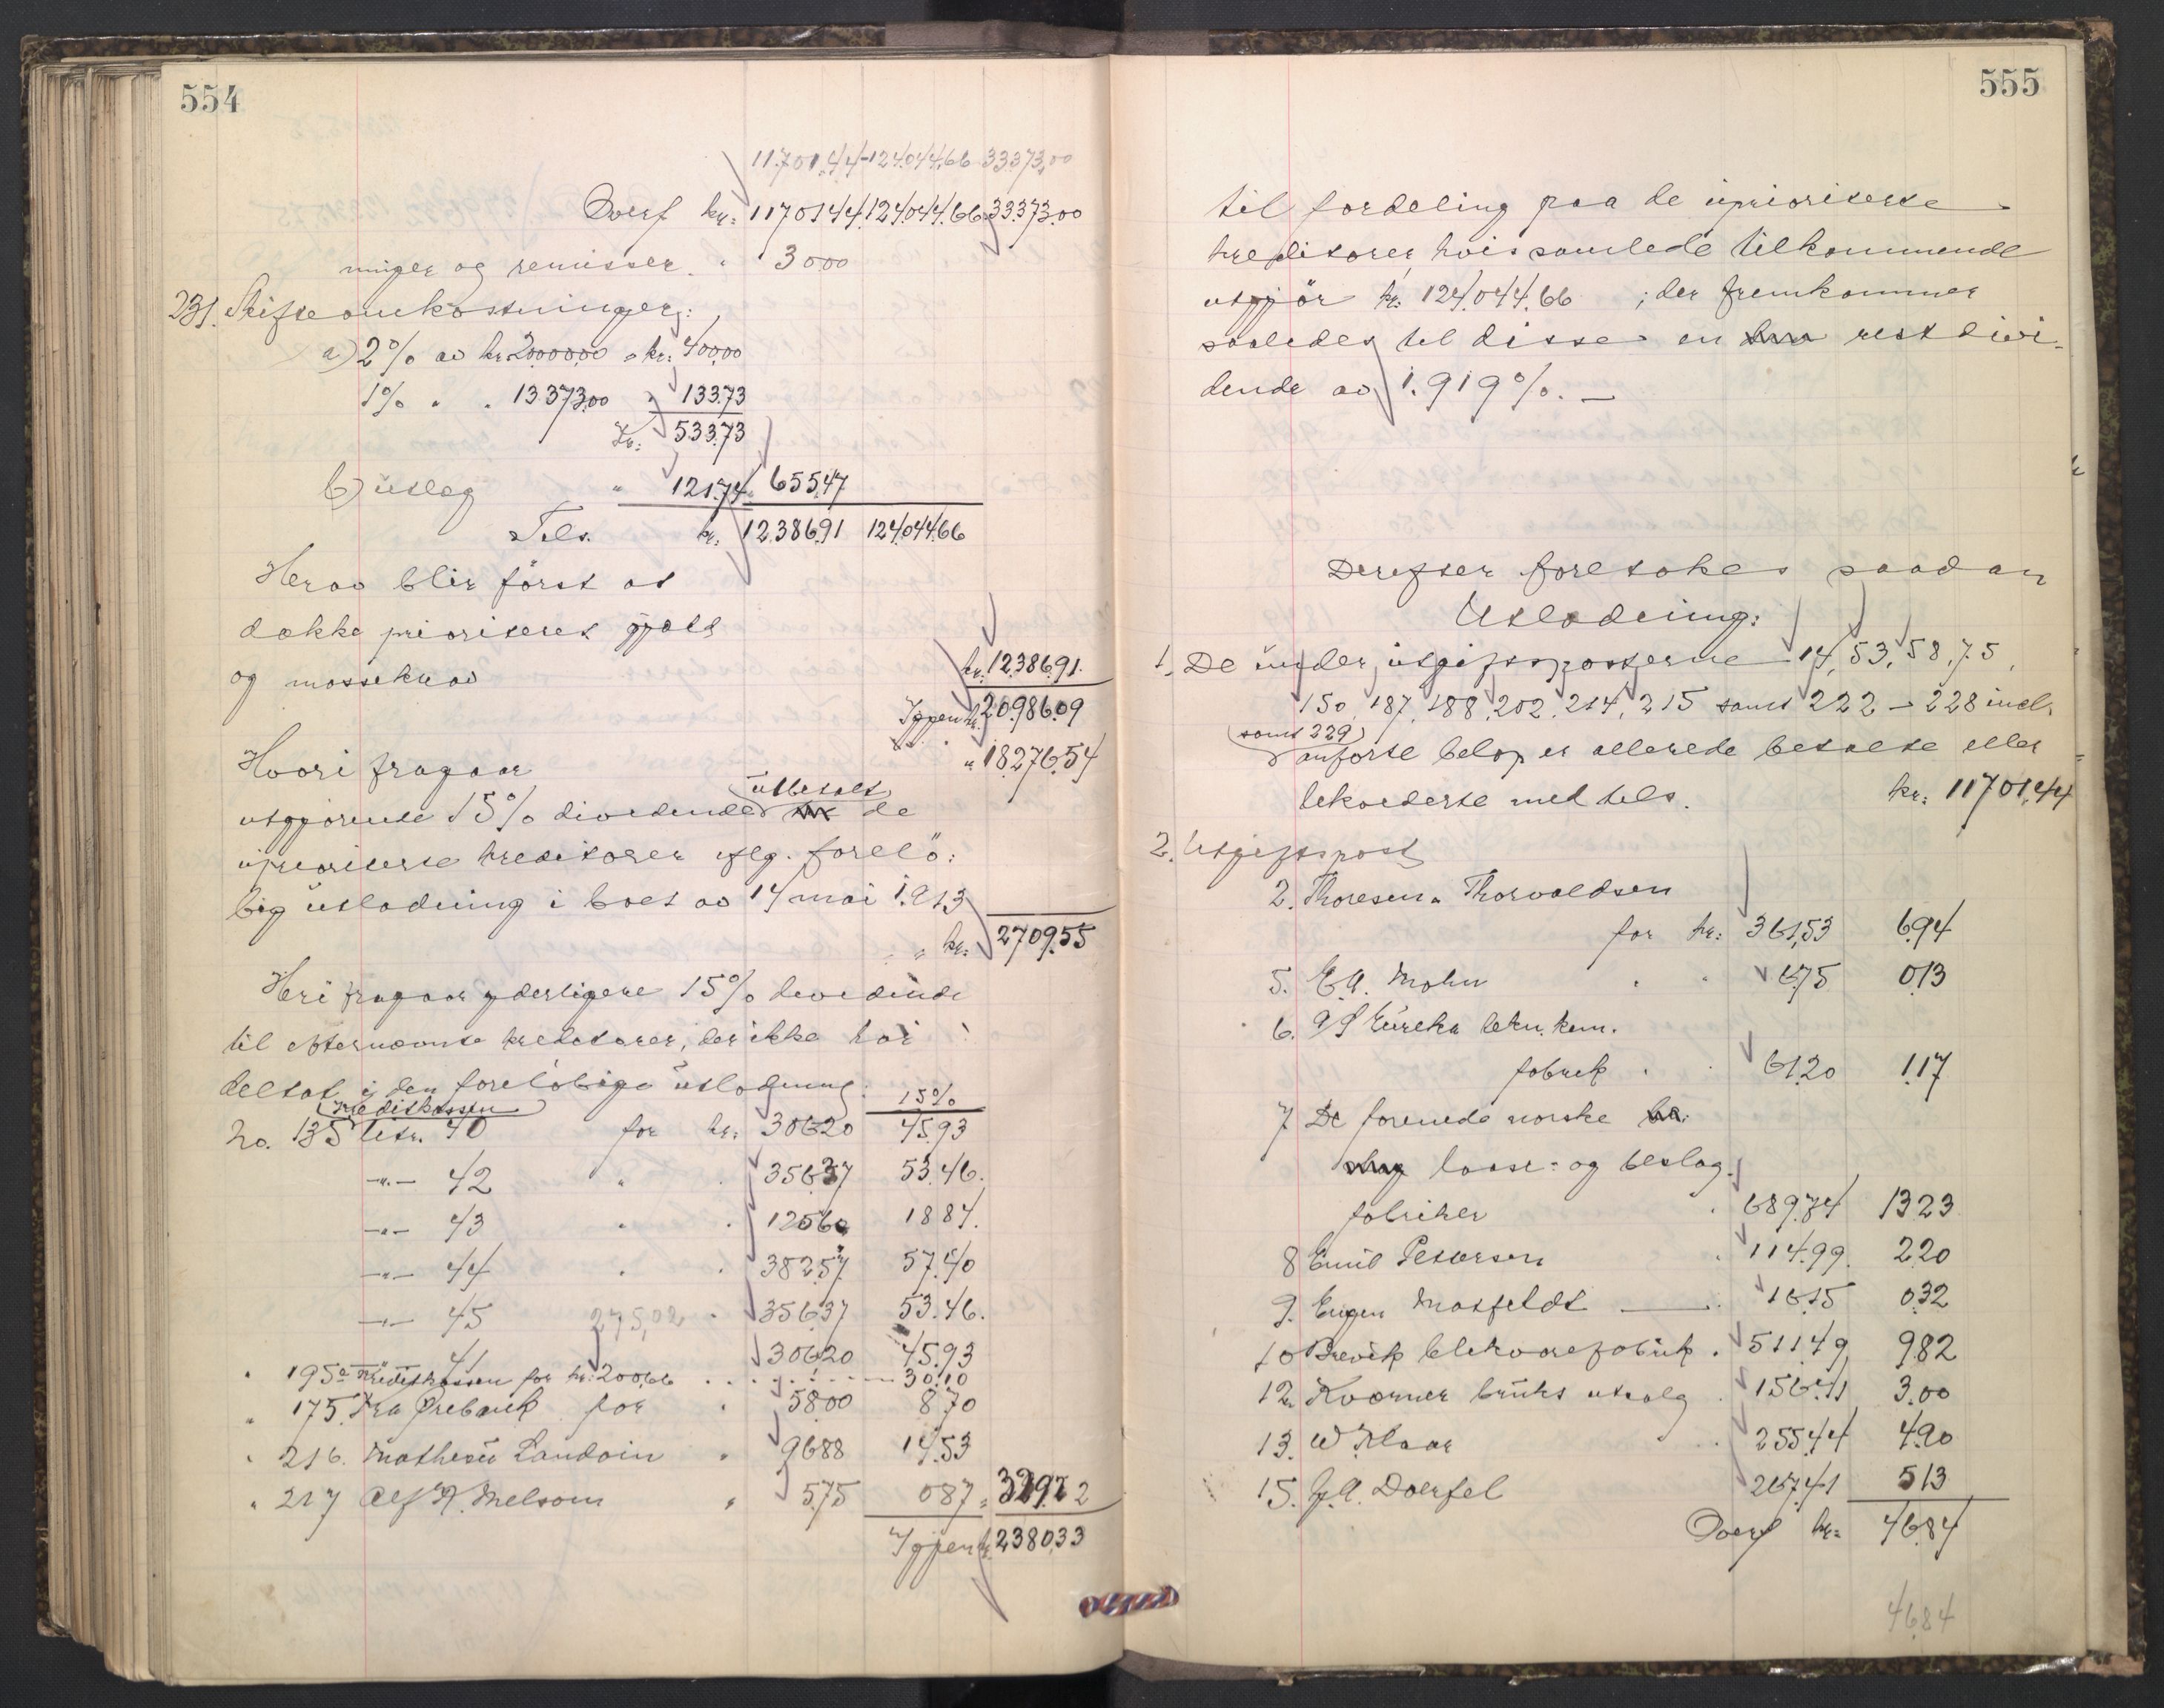 554
11.701,44 124.044,66 33373,00
Overf kr: 11701.44. 124.044.66. 33.373.00
ninger og remisser. " 30 00
231. Skifteomkostninger:
a) 2% av kr. 20000.00 = kr: 400.00
1% " " 13373.00 " 133.73
Kr: 533.73
b) utlæg " 121.74 " 655.47
Tils. kr. 12386.91 124.044.66
Herav blir først at
dække prioritert gjæld
og massekrav kr. 12386.91.
Igjen kr. 20986.09
Hvori fragaar " 18.276.54
utbetalt
utgjørende 15% dividende de
uprioriterte kreditorer iflg. forelö:
big utlodning i boet av 14 mai 1913
" kr: 2709.55
Heri fragaar yderligere 15% dividende
til efternævnte kreditorer, der ikke har
deltat i den foreløbige utlodning: 15%
Kreditkassen
No. 135 litr. 40 for kr: 306.20 45.93
-"- 42 " " 356.37 53.46.
-"- 43 " " 125.60 18.84.
-"- 44 " " 382.57 57.40
-"- 45 275,02 " 356.37 53.46.
41 306.20 45.93
" 195a Kreditkassen for kr: 200,66 30.10
" 175. Fra Ørebank for " 58.00 8.70
" 216. Mathesü Landoin " 96.88 14.53
" 217 Alf N. Melsom " 5.75 0.87 = 329.22
Igjen kr. 2380.33
555
til fordeling paa de uprioriterte
kreditorer, hvis samlede tilkommende
utgjör kr: 124.044.66 ; der fremkommer
saaledes til disse en rest divi-
dende av 1.919%. —
Derefter foretokes saadan
Utlodning:
1. De under utgiftsposterne 14, 53, 58, 75,
150, 187, 188, 202, 214, 215 samt 222 - 228 incl.
samt 229
anførte beløp er allerede betalte eller
likviderte med tils. kr: 11701,44
2. Utgiftspost
2. Thoresen & Thorvaldsen
for kr: 361,53 6.94
5. E.A. Mohn " " 6.75 0.13
6. A/S Eureka tekn. kem.
fabrik " " 61.20 1.17
7 De forenede norske
laase- og beslag-
fabriker " 689.74 13.23
8 Emil Petersen " 114.99. 2.20
9. Eugen Mosfeldt — " 16.15 0.32
10 Brevik blikvarefabrik " 511.49 9.82
12. Kværner bruks utsalg " 156.41 3.00
13. W. Klaar " 255.44 4.90
15. G.A. Doerfel 267.41 5.13
Overf kr: 46.84
46.84